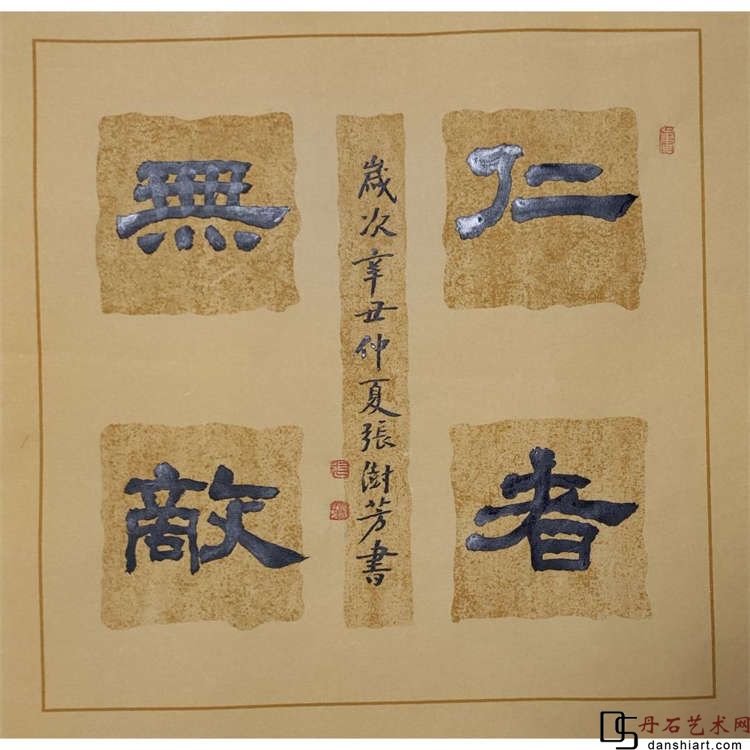 仁者
無敵
歲次辛丑仲夏張澍芳書
張
丹石艺术网
danshiart.com